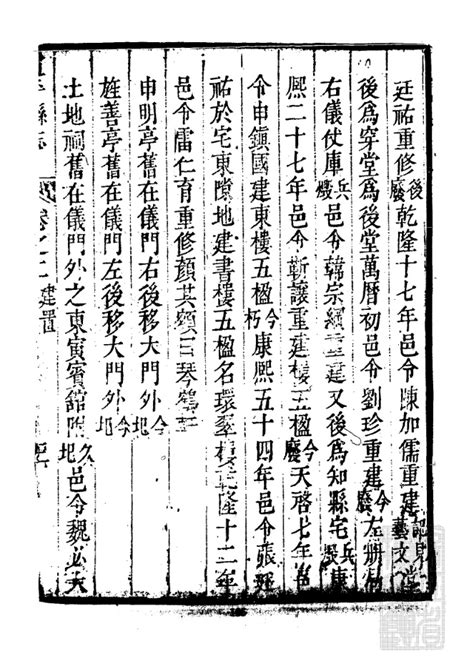 廷祐重修後廢乾隆十七年邑令陳加儒重建記見藝文堂
後爲穿堂爲後堂萬曆初邑令劉珍重建今廢左册房
右儀仗庫兵燬邑令韓宗綱重建又後爲知縣宅兵燬康
熙二十七年邑令靳讓重建樓三楹今廢天啓七年邑
令申鎮國建東樓五楹今朽康熙五十四年邑令張
祐於宅東隙地建書樓五楹名環翠樓乾隆十二年
邑令雷仁育重修顏其額曰琴鶴
申明亭舊在儀門右後移大門外今圯
旌善亭舊在儀門左後移大門外今圯
土地祠舊在儀門外之東寅賓舘久圯邑令魏必大
縣志 卷之二 建置
165